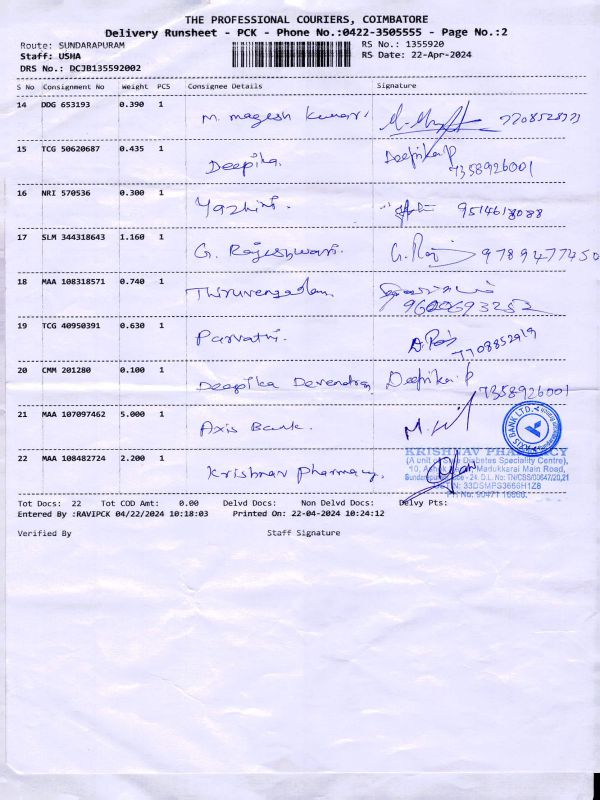 THE PROFESSIONAL COURIERS, COIMBATORE
Delivery Runsheet - PCK - Phone No.:0422-3505555 - Page No.:2
Route: SUNDARAPURAM RS No.: 1355920
Staff: USHA RS Date: 22-Apr-2024
DRS No.: DCJB135592002
S No Consignment No Weight PCS Consignee Details Signature
14 DDG 653193 0.390 1 M. Magesh Kumar.
15 TCG 50620687 0.435 1 Deepika. Deepika.P
7358926001
16 NRI 570536 0.300 1 Yazhini.
17 SLM 344318643 1.160 1 G. Rajeshwari. G. Raj 9789477450
18 MAA 108318571 0.740 1 Thiruvengadam.
9600693252
19 TCG 40950391 0.630 1 Parvathi.
7708852919
20 CMM 201280 0.100 1 Deepika Devendra Deepika.P
7358926001
21 MAA 107097462 5.000 1 Axis Bank.
22 MAA 108482724 2.200 1 Krishnav Pharmacy.
KRISHNAV PHARMACY
(A unit of Diabetes Speciality Centre),
10, Madukkarai Main Road,
Tot Docs: 22 Tot COD Amt: 0.00 Delvd Docs: Non Delvd Docs: Delvy Pts:
Entered By :RAVIPCK 04/22/2024 10:18:03 Printed On: 22-04-2024 10:24:12
Verified By Staff Signature